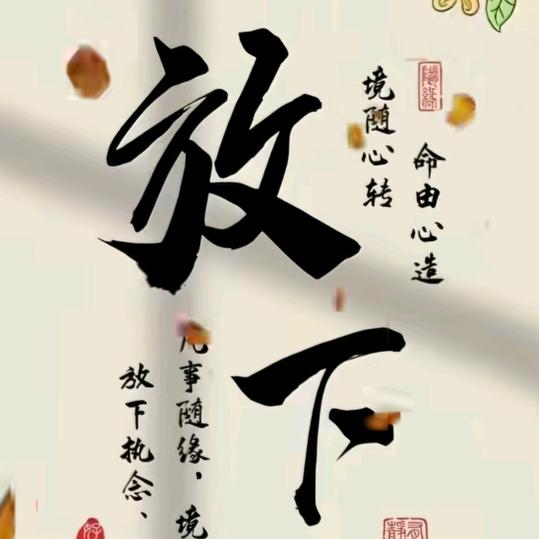 放下
命由心造
境随心转
凡事随缘，境
放下执念、
随缘